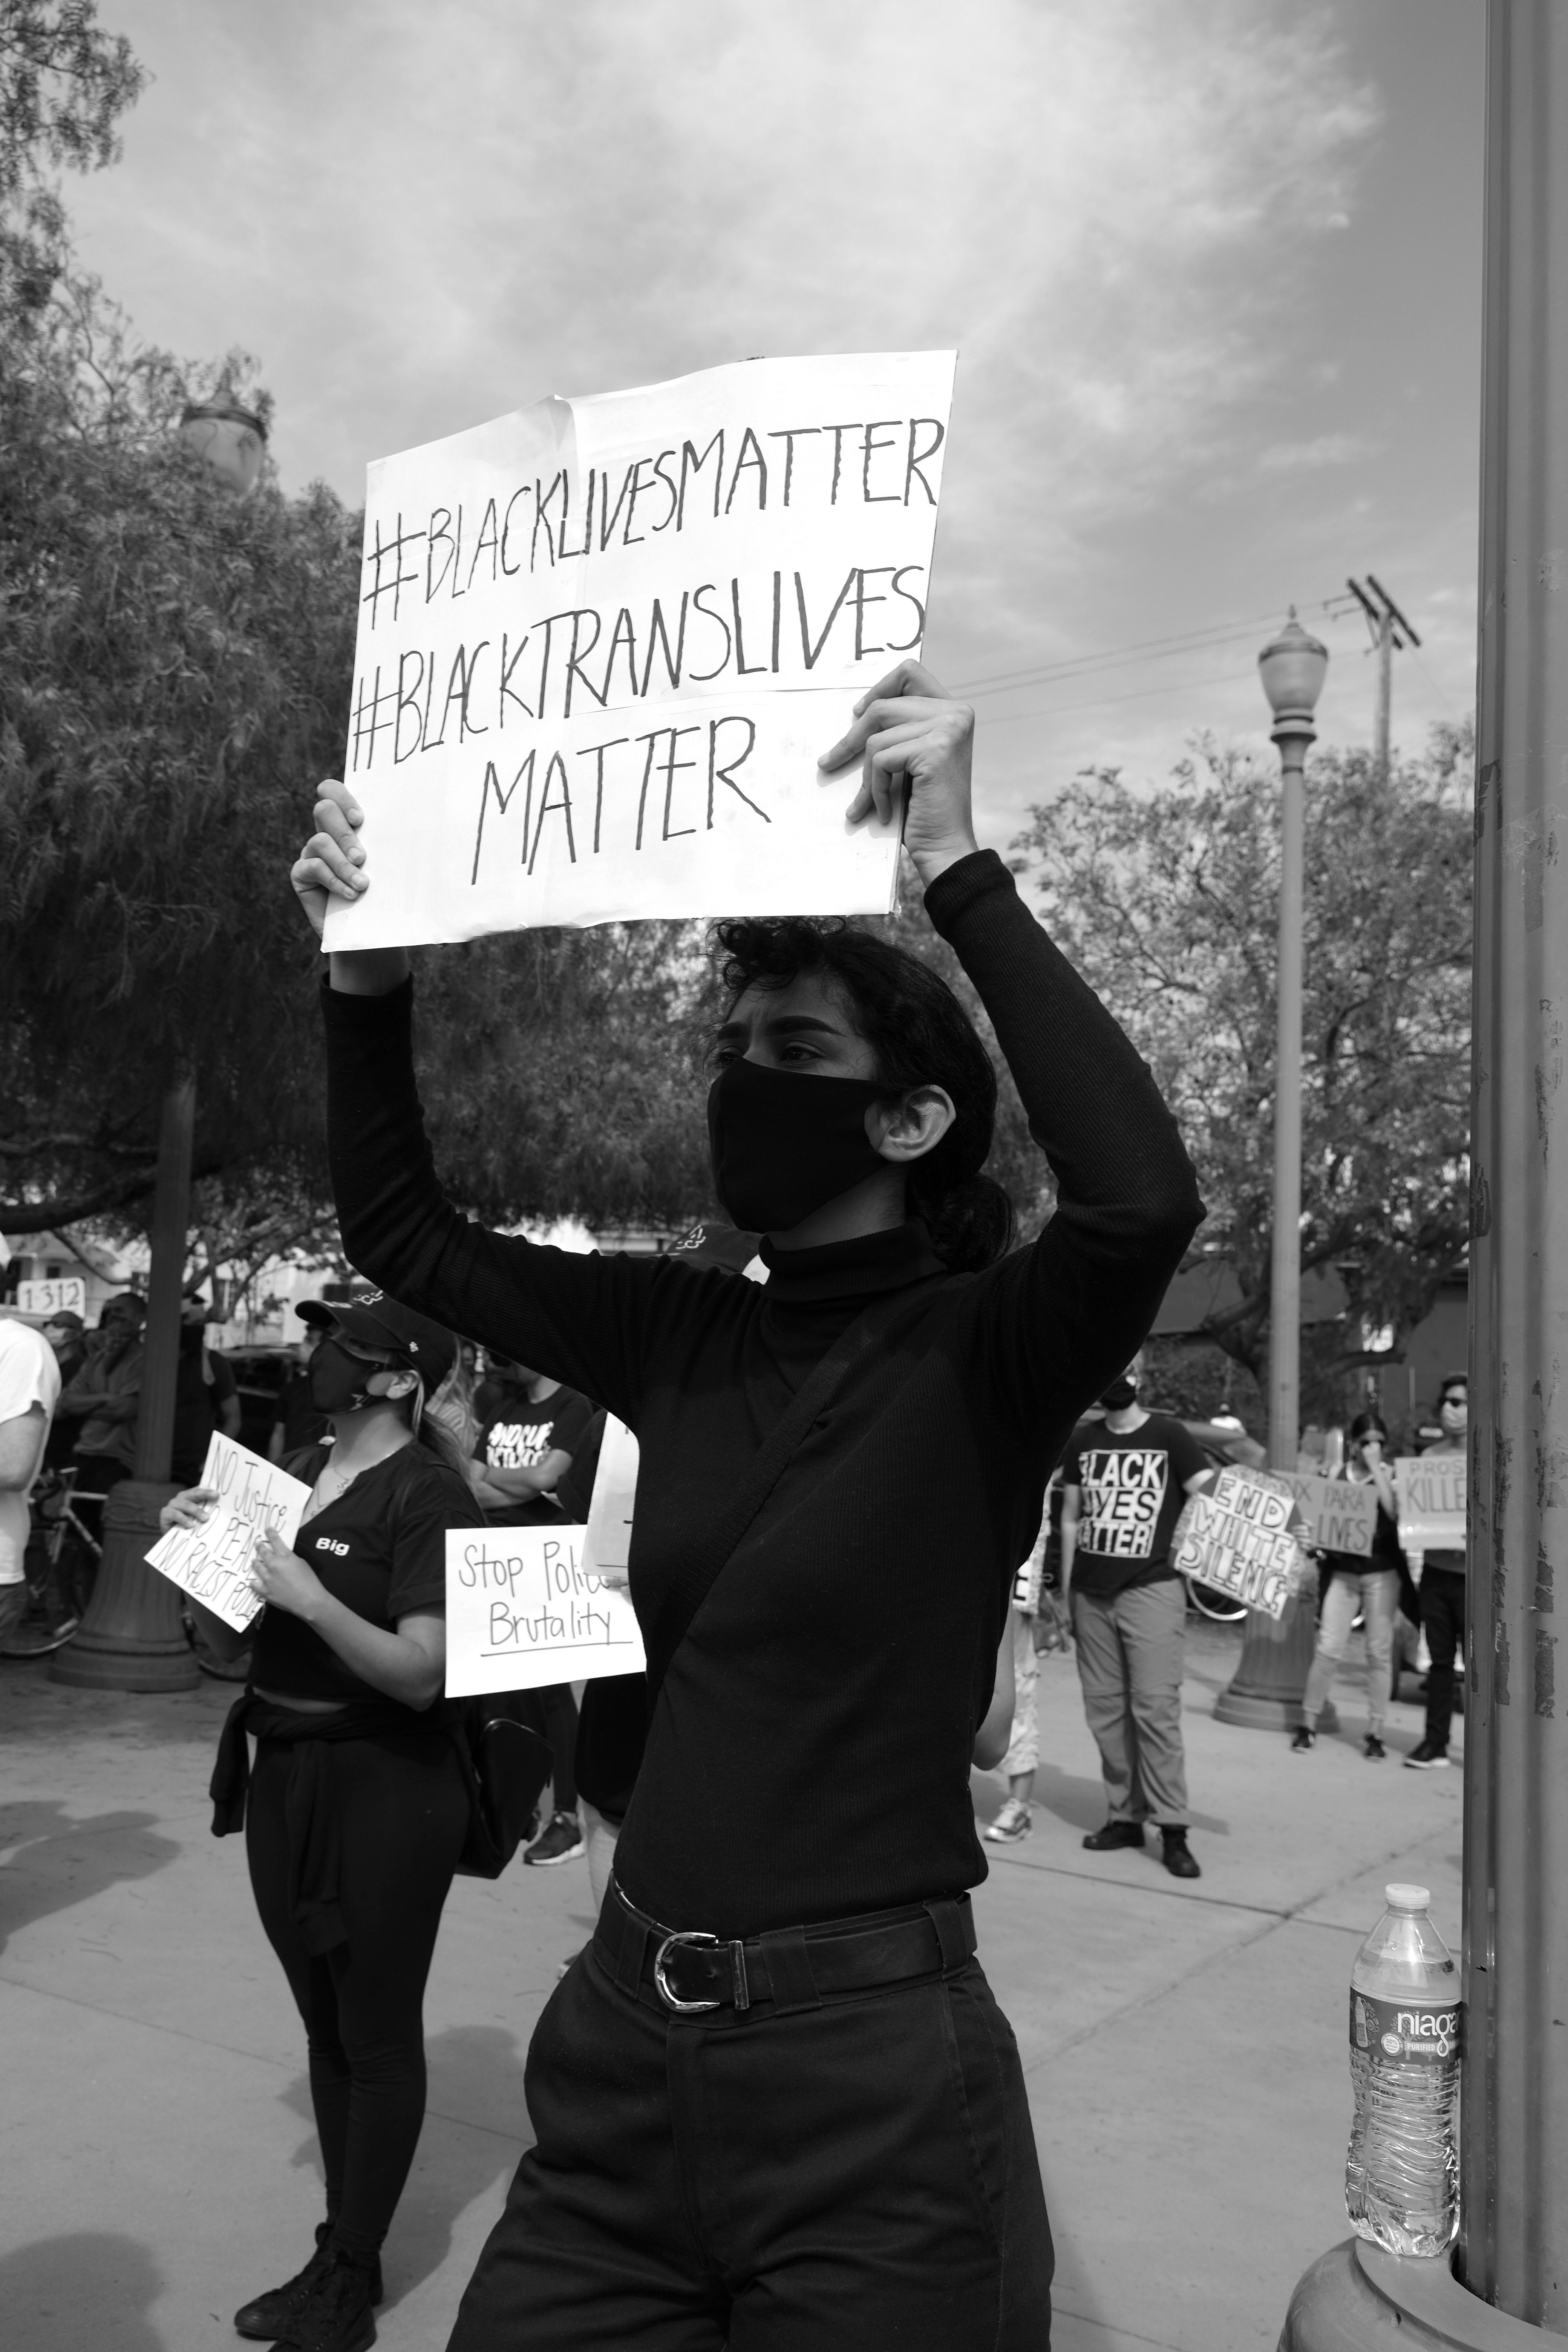 #BLACKLIVESMATTER
#BLACKTRANSLIVES
MATTER
1312
NO Justice
NO PEACE
NO RACIST POLICE
Big
Stop Police
Brutality
BLACK
LIVES
MATTER
END
WHITE
SILENCE
PARA
LIVES
PROS
KILLE
niaga
PURIFIED